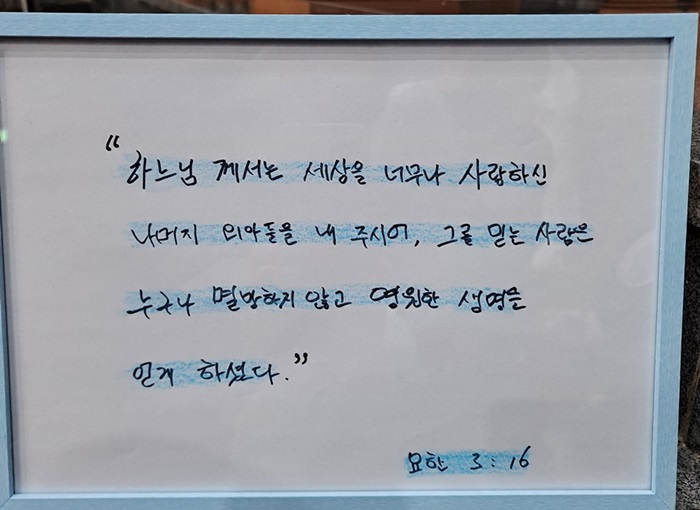 “하느님 께서는 세상을 너무나 사랑하신
나머지 외아들을 내 주시어, 그를 믿는 사람은
누구나 멸망하지 않고 영원한 생명을
얻게 하셨다.”
요한 3:16